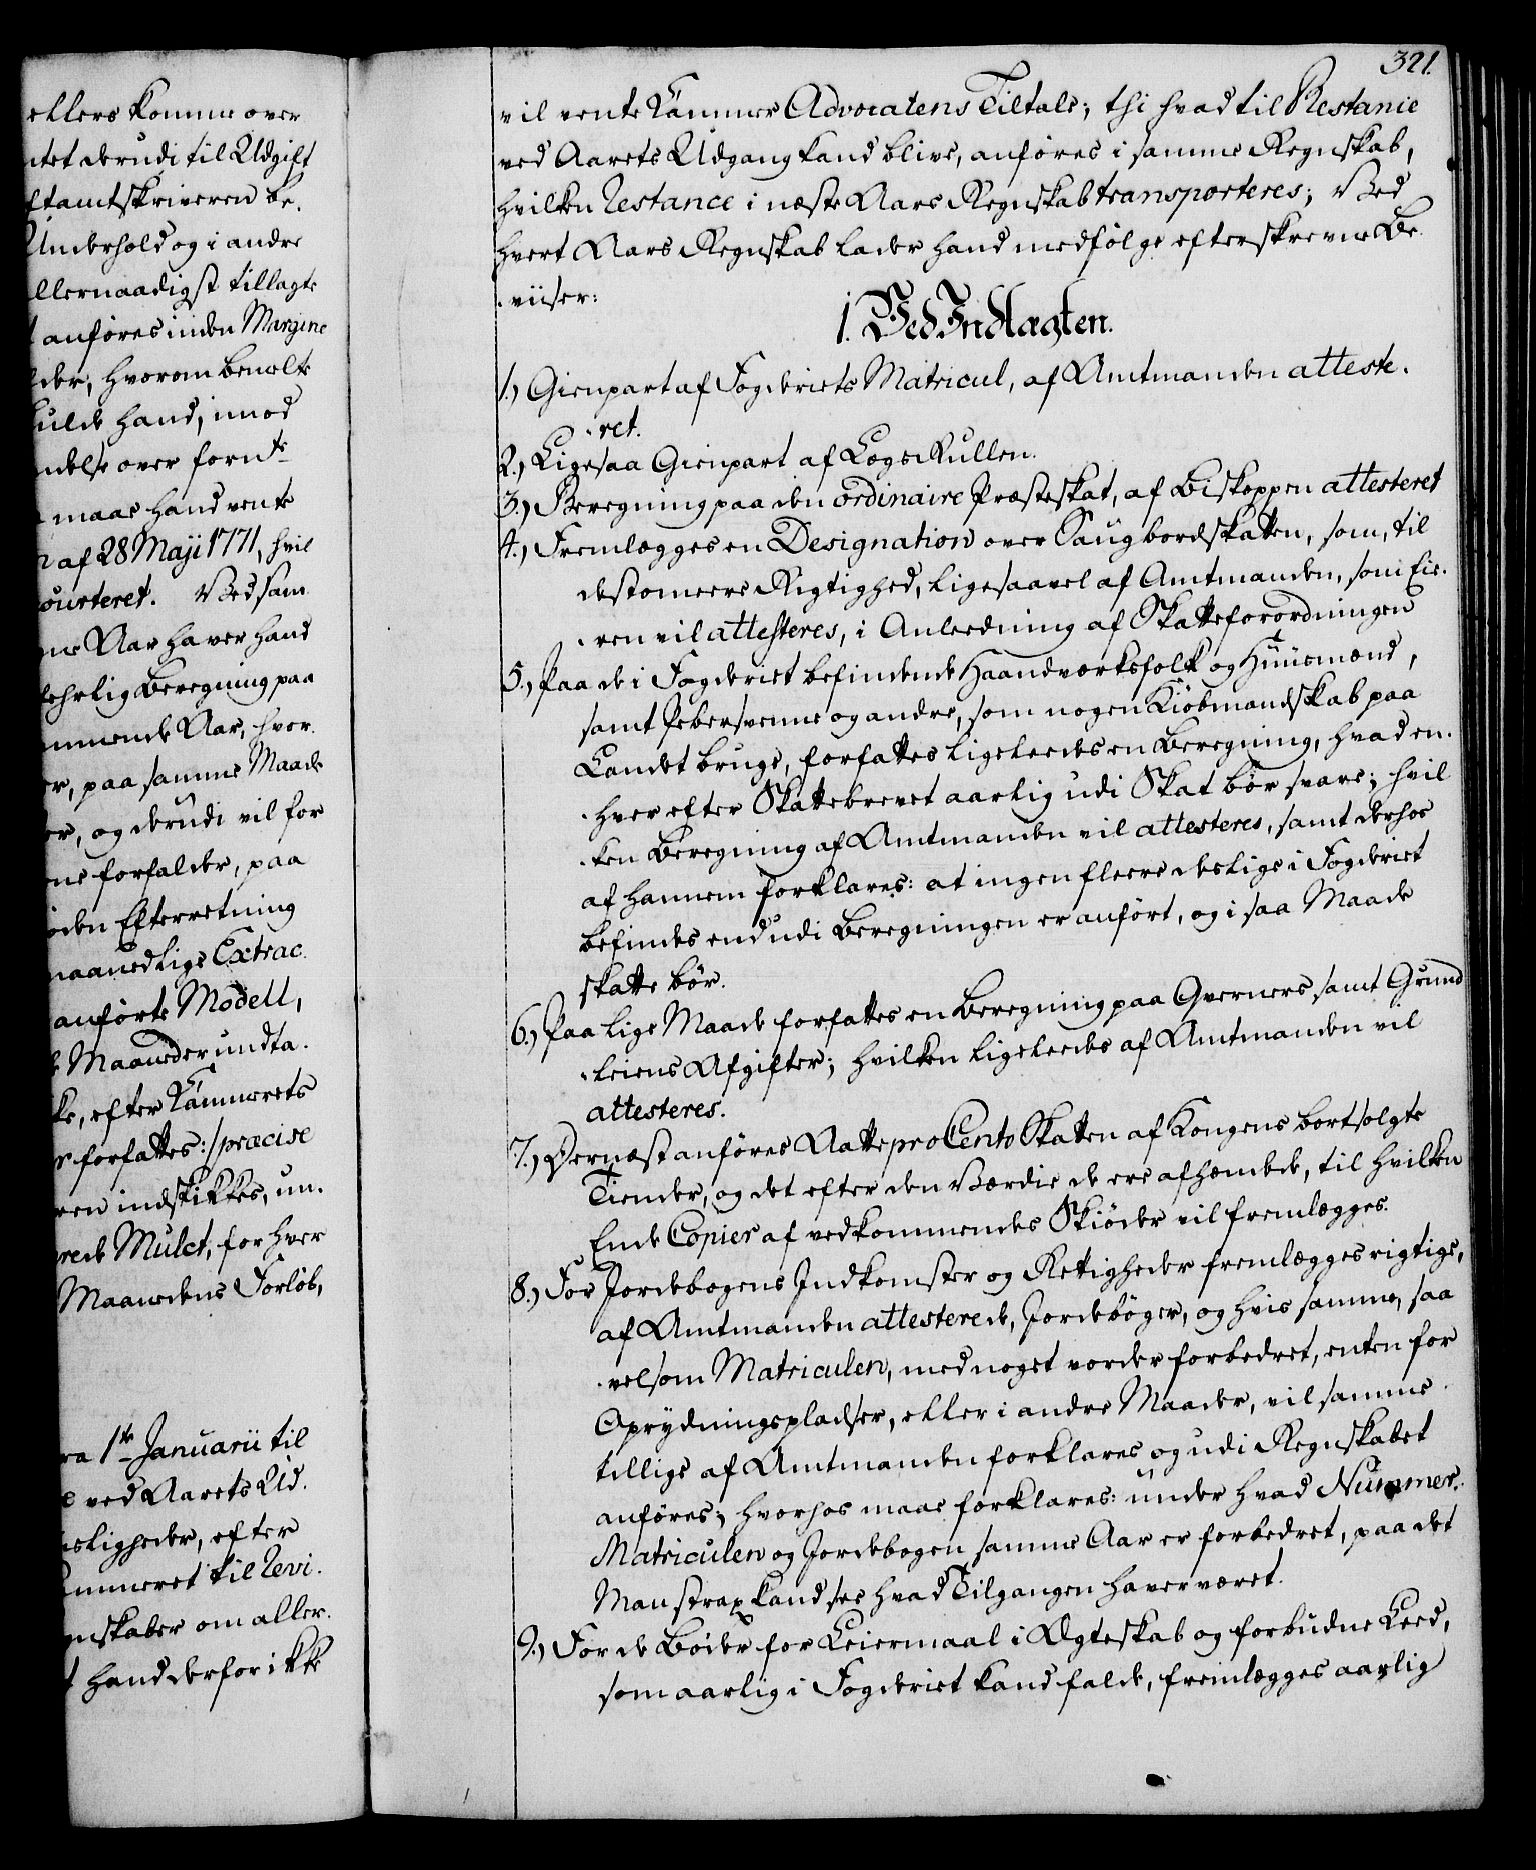 ellers komme over
ntet derudi til Udgift
ftamtskriveren be-
Underhold og i andre
llernaadigst tillagte
anføres inden Margine
lder, hvorom bemelte
kulde hand, imod
ndelse over fornte
maae hand vente
af 28 Maji 1771, hvil
ourteret. Ved sam
me Aar haver hand
kehrlig Beregning paa
ommende Aar, hvor-
er, paa samme Maade
er, og derudi vil for
ene forfalder, paa
oden Efterretning
maanedlige Extrac-
anførte Modell,
Maaneder undta-
ke, efter Kammerets
forfattes :/ præcise
ren indstikkes, un-
rede Mulct, for hver
Maanedens Forløb,
ra 1te Januarii til
ved Aarets Ud-
isligheder, efter
ammeret til Revi-
gnskaber om aller-
hand derfor ikke
321.
vil vente Kammer Advocatens Tiltale; thi hvad til Restance
ved Aarets Udgang kand blive, anføres i samme Regnskab,
hvilken Restance i næste Aars Regnskab transporteres; Ved
hvert Aars Regnskab lader hand medfølge efterskrevne Be-
-viiser:
1. Ved Indtægten.
1.) Gienpart af Fogderiets Matricul, af Amtmanden atteste-
-ret.
2.) Ligesaa Gienpart af Lægs Rullen.
3.) Beregning paa den ordinaire Præsteskat, af Biskoppen attesteret
4.) Fremlægges en Designation over Saugbordskatten, som, til
destomeere Rigtighed, ligesaavel af Amtmanden, som Eie-
-ren vil attesteres, i Anledning af Skatteforordningen
5.) Paa de i Fogderiet befindende Haandværksfolk og Huusmænd,
samt Pebersvenne og andre, som nogen Kiøbmandskab paa
Landet bruge, forfattes ligeleedes en Beregning, hvad en-
-hver efter Skattebrevet aarlig udi Skat bør svare; hvil
-ken Beregning af Amtmanden vil attesteres, samt derhos
af hannem forklares: at ingen fleere deslige i Fogderiet
befindes end udi Beregningen er anført, og i saa Maade
skatte bør.
6.) Paa lige Maade forfattes en Beregning paa Qverners samt Grund
-leiens Afgifter; hvilken ligeleedes af Amtmanden vil
attesteres.
7.) Dernæst anføres Aatte pro Cento Skatten af Kongens bortsolgte
Tiender, og det efter den Værdie de ere afhændede, til hvilken
Ende Copier af vedkommendes Skiøder vil fremlægges.
8.) For Jordebogens Indkomster og Rettigheder fremlægges rigtige,
af Amtmanden attesterede, Jordebøger, og hvis samme, saa
-vel som Matriculen, med noget vorder forbedret, enten for
Oprydningspladser, eller i andre Maader, vil samme
tillige af Amtmanden forklares og udi Regnskabet
anføres; hvorhos maae forklares: under hvad Nummer
Matriculen og Jordebogen samme Aar er forbedret, paa det
Man strax kand see hvad Tilgangen haver været.
9.) For de Bøder for Leiermaal i Ægteskab og forbudne Leed,
som aarlig i Fogderiet kand falde, fremlægges aarlig